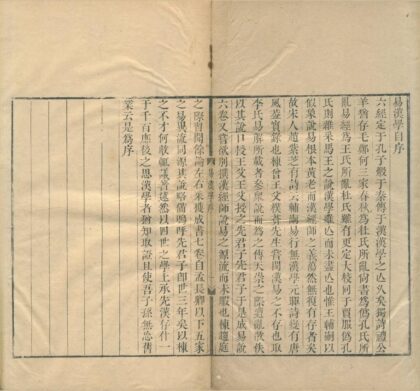 易漢學自序
六經定于孔子燬于秦傳于漢漢學之亾久矣獨詩禮公
羊猶存毛鄭何三家春秋為杜氏所亂尚書為僞孔氏所
亂易經為王氏所亂杜氏雖有更定大校同于賈服僞孔
氏則雜采馬王之說漢學雖亾而未盡亾也惟王輔嗣以
假象說易根本黃老而漢經師之義蕩然無復有存者矣
故宋人趙紫芝有詩云輔嗣易行無漢學元暉詩變有唐
風葢實錄也棟曾王父樸菴先生嘗閔漢易之不存也取
李氏易解所載者參眾說而為之傳天崇之際遭亂散佚
以其說口授王父王父授之先君子先君子于是成易說
六卷又嘗欲別撰漢經師說易之源流而未暇也棟趨庭
之際習聞餘論左右采獲成書七卷自孟長卿以下五家
之易異流同源其說略備嗚呼先君子卽世三年矣以棟
之不才何敢輒議著述然以四世之學上承先漢存什一
于千百庶後之思漢學者猶知取證且使吾子孫無忘舊
業云是為序